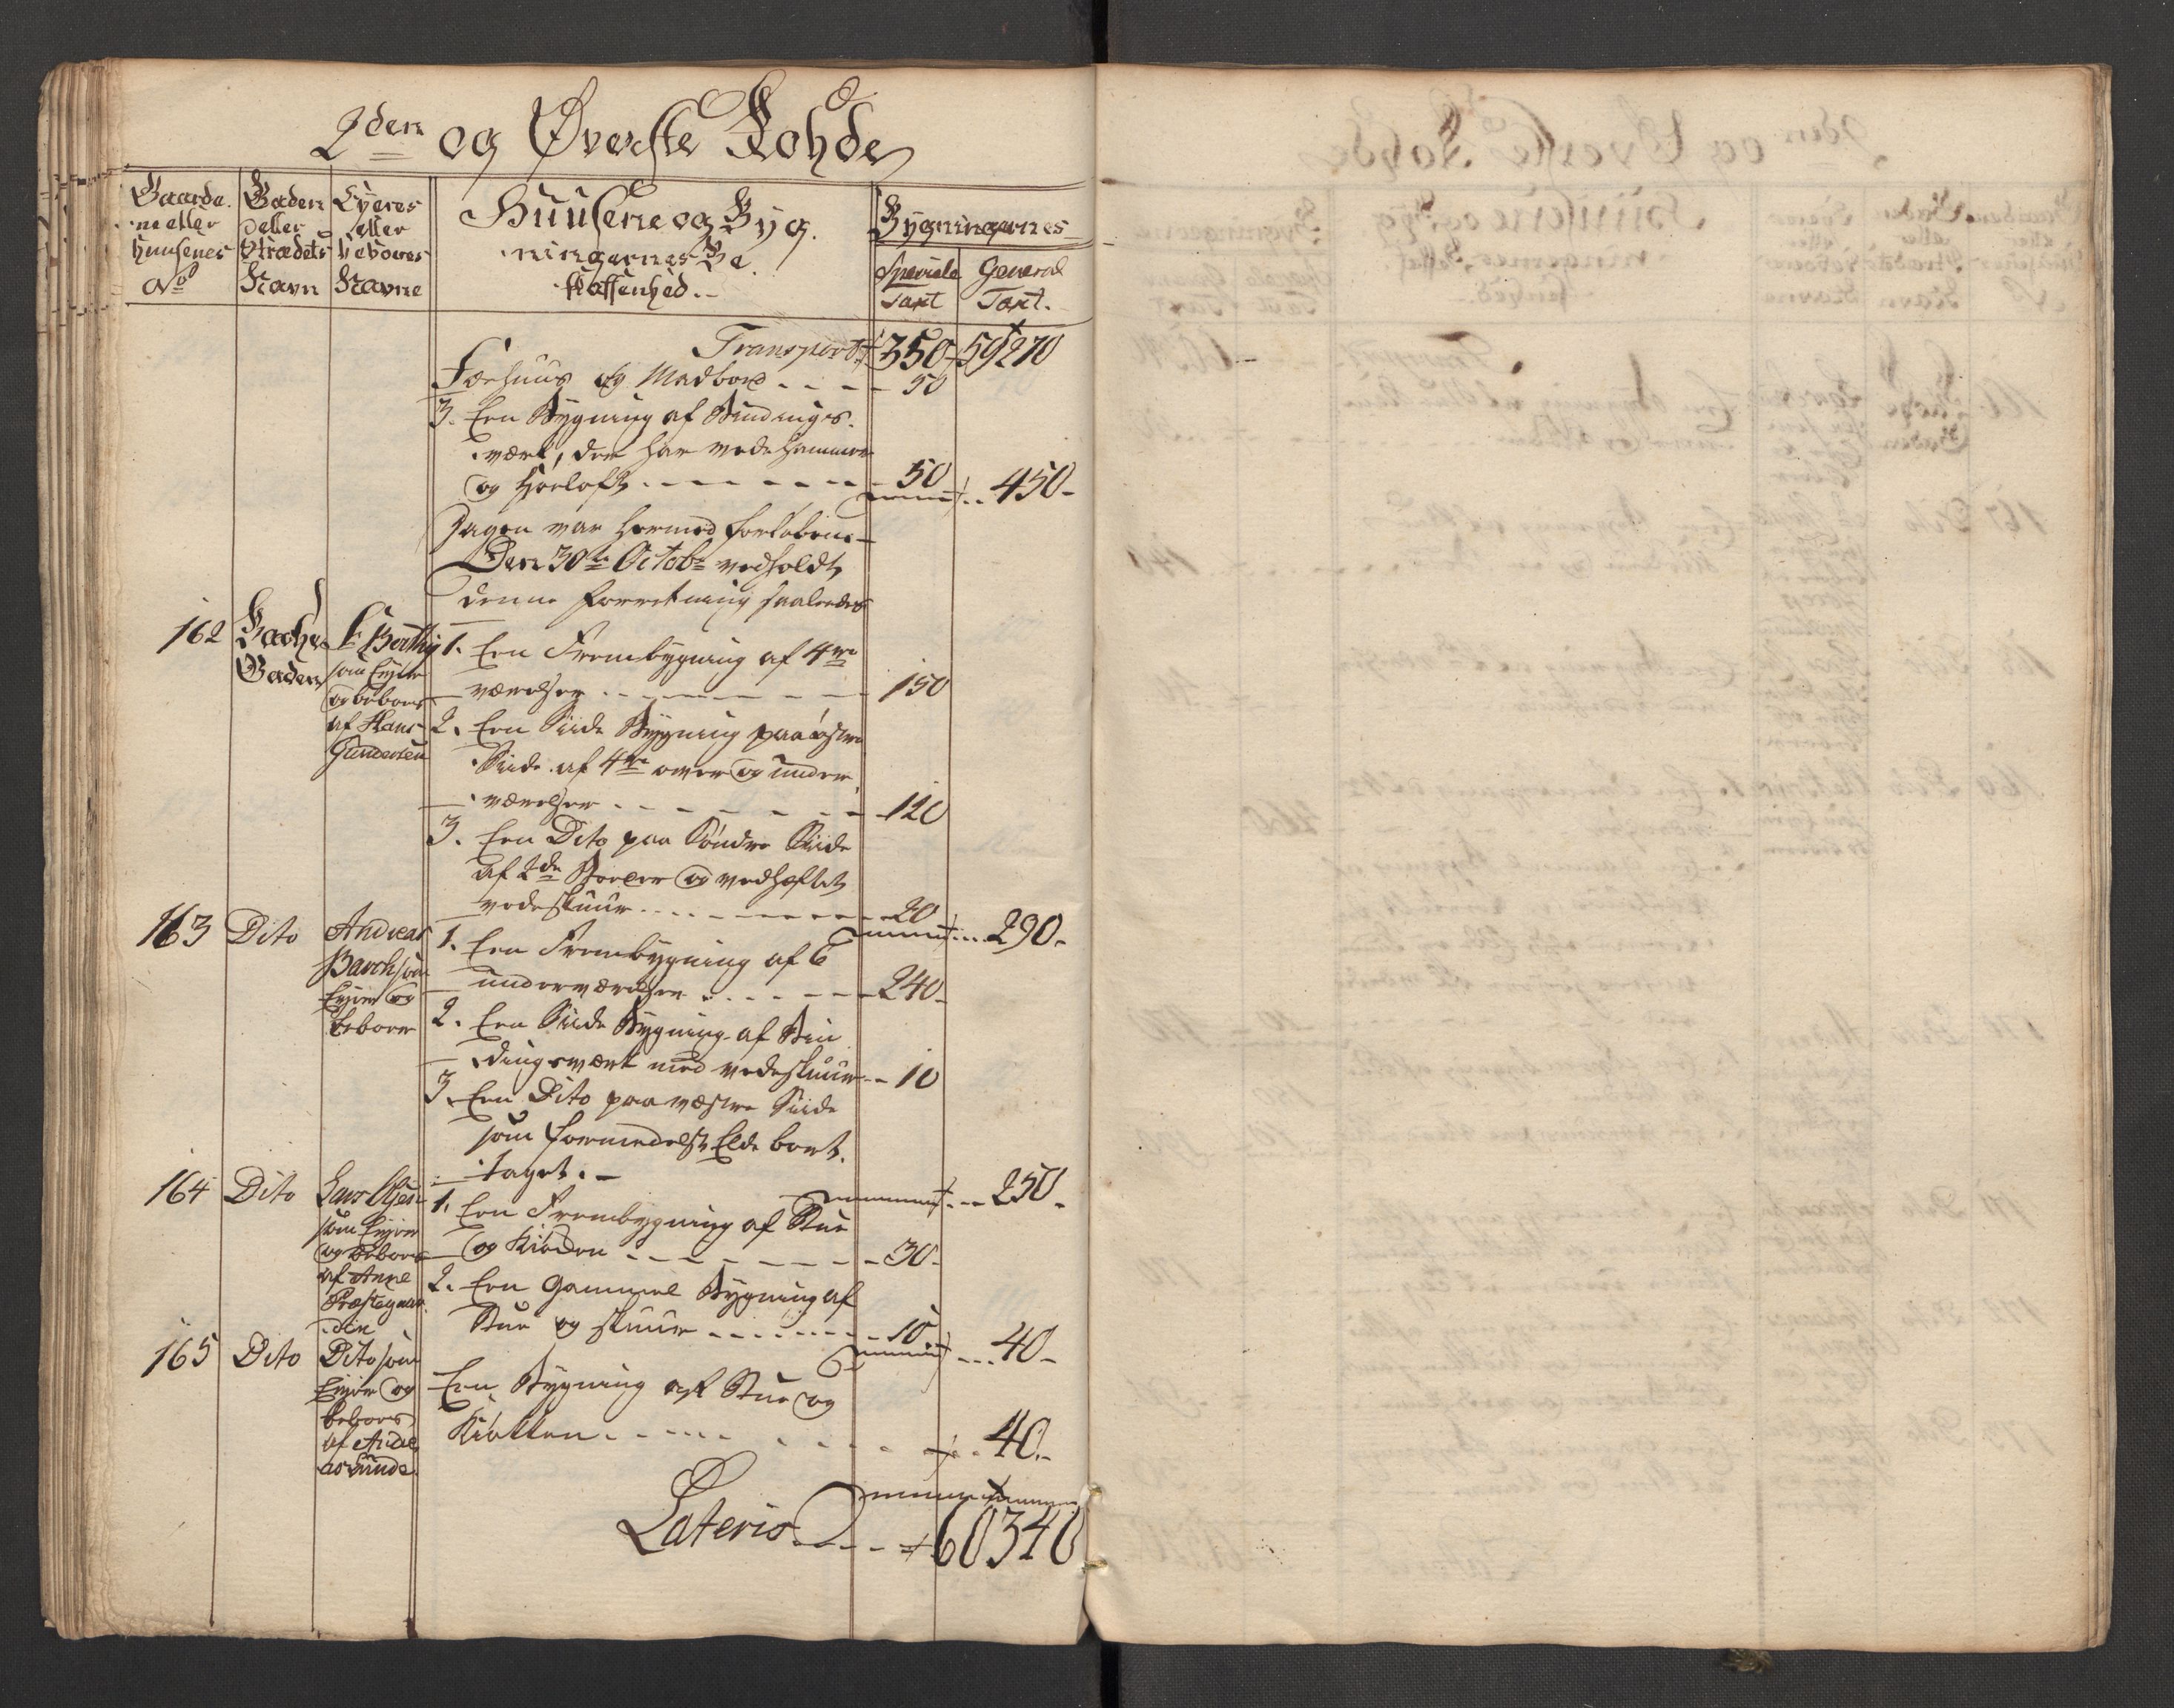 2den og Øverste Rohde
Gaarde-
ne eller
Huusenes
No
Gaden
eller
Strædets
Navn
Eyeres
eller
Beboeres
Navne
Huusene og Byg-
ningernes Be-
skaffenhed.-
Bygningernes
Speciale
Taxt
General
Taxt.
Transport 350 59270
Fæehuus og Madboed - - - - 50
3. Een Bygning af Bindings-
værk, der har vedehammer
og Høeloft - - - - - - 50 - - 450 -
Dagen var hermed forløben
Den 30te Octobr vedholdt
denne forretning saaledes
162 Gaden
Sr Berthy
som Eyer
og beboes
af Hans
Gundersen
1. Een Frembygning af 4re
værelser - - - - - 150
2. Een Siide Bygning paa østre
Siide af 4re over og under
værelser - - - - - - 120
3. Een Dito paa Søndre Siide
af 2de Boeder og vedhæftet
vedeskuur - - - - - - 20 - - 290 -
163 Dito
Andreas
Barch som
Eyer og
beboer
1. Een Frembygning af 6
underværelser - - - - 240 -
2. Een Siide Bygning af Bin
dingsværk med vedeskuur - - 10
3. Een Dito paa væstre Siide
som formedelst Elde bort-
taget. - - - 250 -
164 Dito
Lars
som Eyer
og beboes
af Anne
Præstegaar-
den
1. Een Frembygning af Stue
og Kiøcken - - - - - - 30 -
2. Een Gammel Bygning af
Stue og skuur - - - - - - 10 - - 40 -
165 Dito
Dito som
Eyer og
beboes
af
Een Bygning af Stue og
Kiøkken - - - - - - - 40. -
Lateris - - - 60340